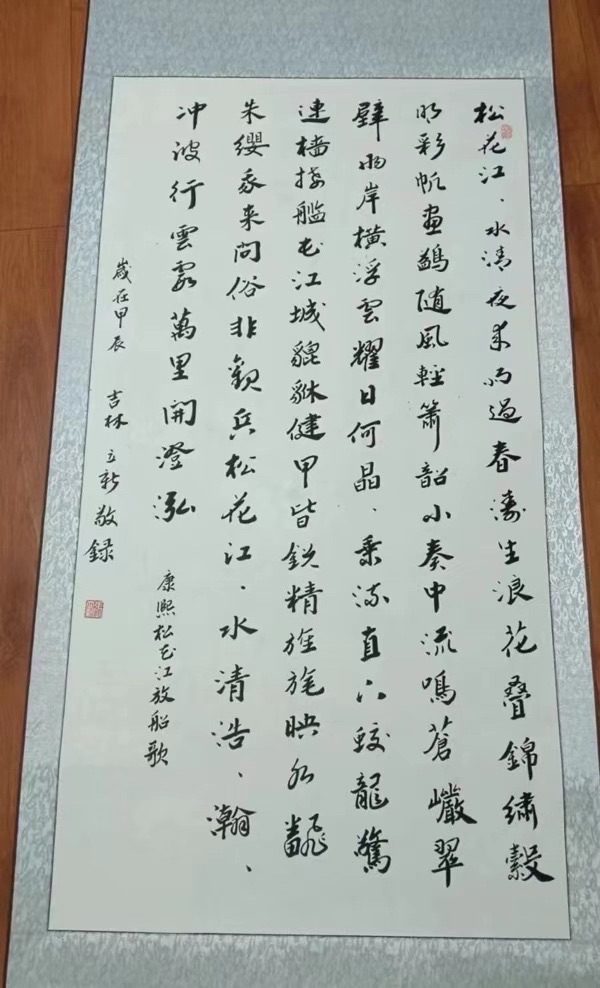 松花江、水清夜来雨過春濤生浪花疊錦繡縠
明彩帆畫鷁随風輕簫韶小奏中流鳴蒼巖翠
壁兩岸橫浮雲耀日何晶、乘流直下蛟龍驚
連檣接艦屯江城貔貅健甲皆銳精旌旄映水翻
朱纓我来問俗非觀兵松花江、水清浩、瀚、
冲波行雲霞萬里開澄泓
康熙松花江放船歌
歲在甲辰 吉林 立新敬録